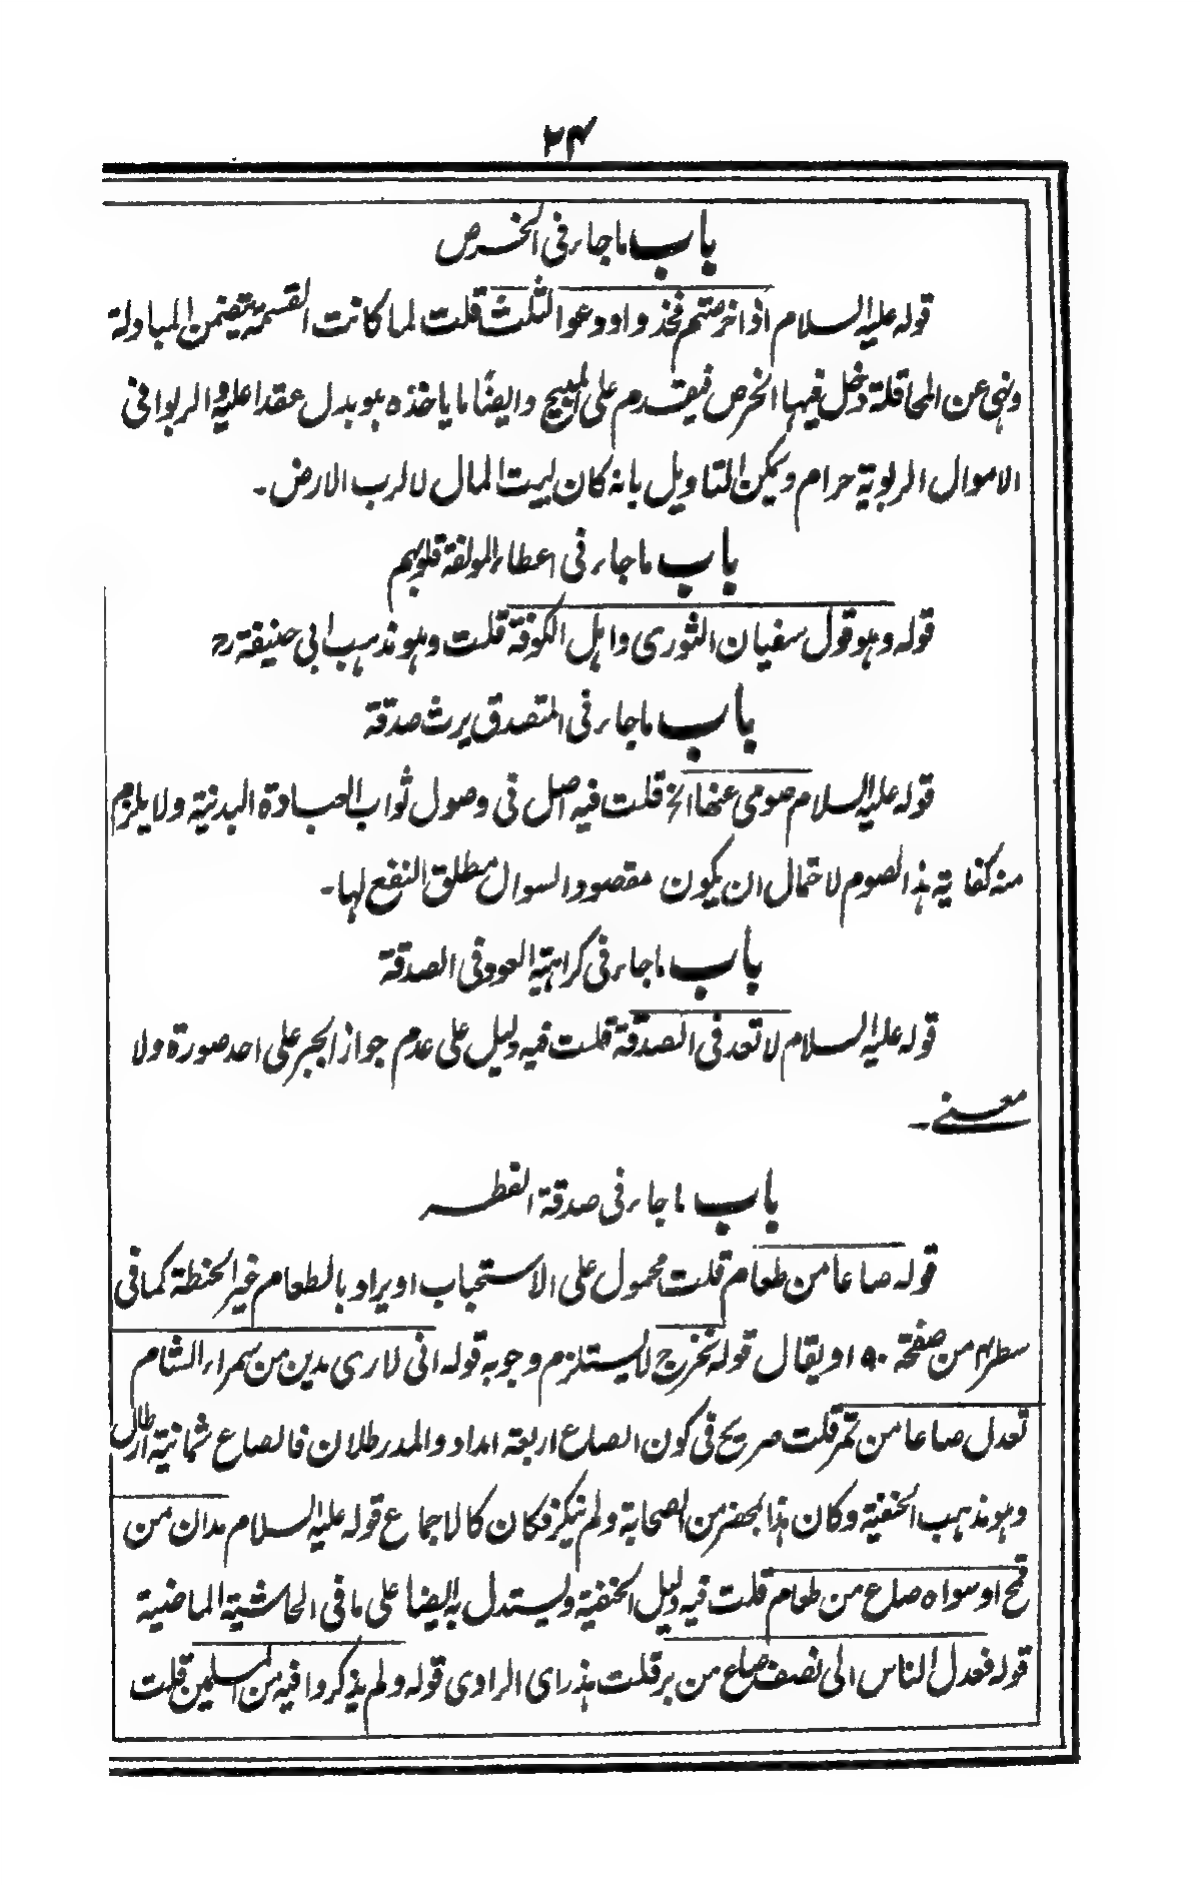 ۲۴
باب ما جاء فی الخرص
قوله علیه السلام اذا خرصتم فخذوا ودعوا الثلث قلت لما کانت القسمة یتضمن المبادلة
ونهی عن المحاقلة دخل فیها الخرص فیقدم علی المبیح وایضًا ما یاخذه هو بدل عقدا علیه والربوا فی
الاموال الربویة حرام ویمکن التاویل بانه کان لبیت المال لا لرب الارض۔
باب ما جاء فی اعطاء المولفة قلوبهم
قوله وهو قول سفیان الثوری واهل الکوفة قلت وهو مذهب ابی حنیفة رح
باب ما جاء فی المتصدق یرث صدقة
قوله علیه السلام صومی عنها الخ قلت فیه اصل فی وصول ثواب العبادة البدنیة ولا یلزم
منه کفایة هذا الصوم لاحتمال ان یکون مقصود السوال مطلق النفع لها۔
باب ما جاء فی کراهیة العود فی الصدقة
قوله علیه السلام لا تعد فی الصدقة قلت فیه دلیل علی عدم جواز الجبر علی احد صورة ولا
معنے۔
باب ما جاء فی صدقة الفطر
قوله صاعا من طعام قلت محمول علی الاستحباب او یراد بالطعام غیر الحنطة کما فی
سطر ۴ من صفحة ۹۰ او یقال قوله نخرج لا یستلزم وجوبه قوله انی لاری مدین من سمراء الشام
تعدل صاعا من تمر قلت صریح فی کون الصاع اربعة امداد والمد رطلان فالصاع ثمانیة ارطال
وهو مذهب الحنفیة وکان هذا بمحضر من الصحابة ولم ینکر فکان کالاجماع قوله علیه السلام مدان من
قمح او سواه صاع من طعام قلت فیه دلیل الحنفیة ولیستدل به ایضا علی ما فی الحاشیة الماضیة
قوله فعدل الناس الی نصف صاع من بر قلت هذا رای الراوی قوله ولم یذکروا فیه من المسلمین قلت